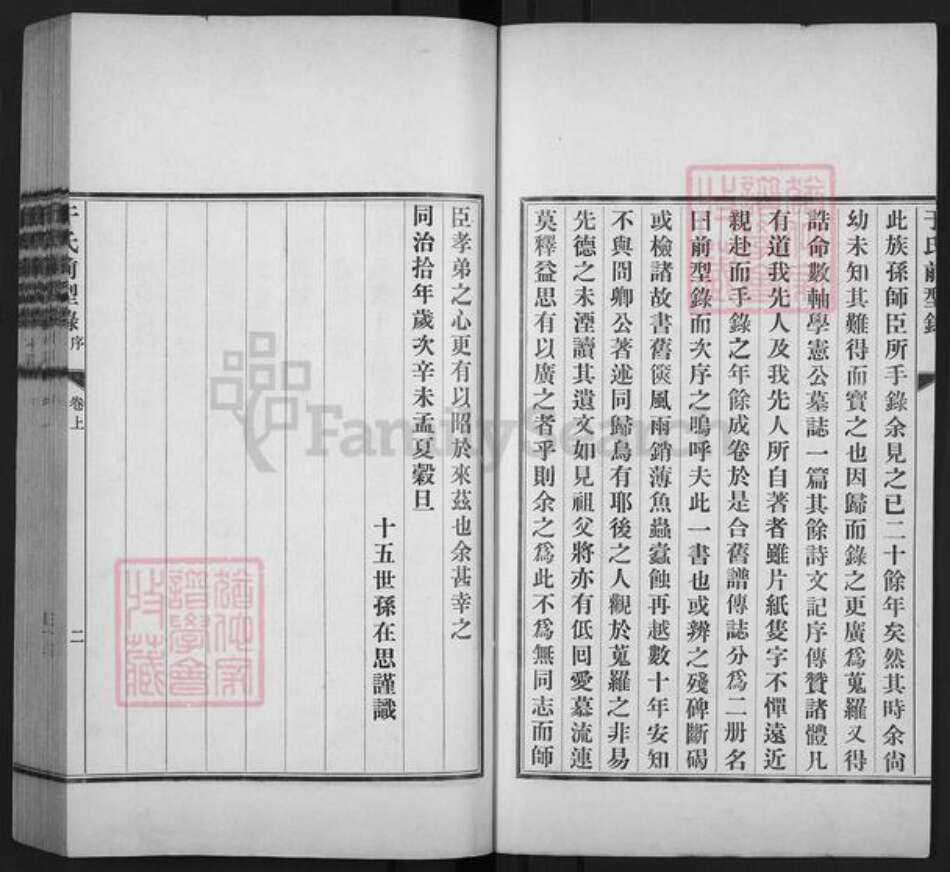 于氏前型錄
此族孫師臣所手錄余見之已二十餘年矣然其時余尙
幼未知其難得而寶之也因歸而錄之更廣爲蒐羅又得
誥命數軸學憲公墓誌一篇其餘詩文記序傳贊諸體凡
有道我先人及我先人所自著者雖片紙隻字不憚遠近
親赴而手錄之年餘成卷於是合舊譜傳誌分爲二册名
曰前型錄而次序之嗚呼夫此一書也或辨之殘碑斷碣
或檢諸故書舊篋風雨銷薄魚蟲蠹蝕再越數十年安知
不與閻卿公著述同歸烏有耶後之人觀於蒐羅之非易
先德之未湮讀其遺文如見祖父將亦有低囘愛慕流連
莫釋益思有以廣之者乎則余之爲此不爲無同志而師
臣孝弟之心更有以昭於來茲也余甚幸之
同治拾年歲次辛未孟夏穀旦
十五世孫在思謹識
于氏前型錄 序 卷上 二
FamilySearch
譜學會
收藏